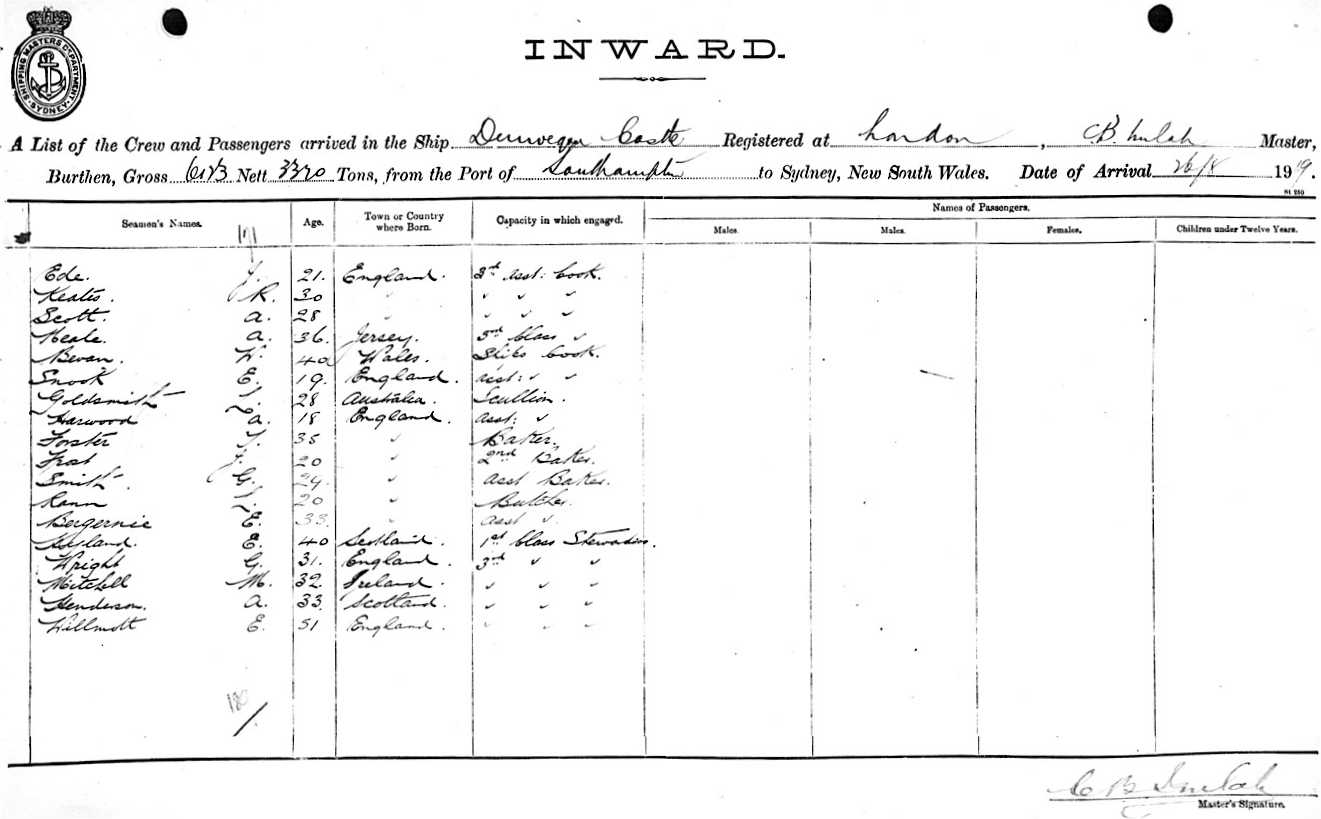 SHIPPING MASTERS DEPARTMENT. SYDNEY
INWARD.
A List of the Crew and Passengers arrived in the Ship Dunvegan Castle Registered at London, C.B. Master,
Burthen, Gross Nett 3320 Tons, from the Port of Southampton to Sydney, New South Wales. Date of Arrival 26/8 1919.
Seamen's Names. Age. Town or Country where Born. Capacity in which engaged. Names of Passengers.
Males. Males. Females. Children under Twelve Years.
Ede. 21. England. 3rd asst: Cook.
Keates. R. 30 " " " "
Scott. A. 28 " " " "
Neale. A. 36. Jersey. 3rd Class "
Bevan. W. 40 Wales. Cook.
Snook E. 19. England. asst: " "
Goldsmith 28 Australia. Scullion.
Harwood A. 18 England. asst: "
Forster 35 " Baker.
Frost 20 " 2nd Baker.
Smith G. 29. " asst Baker.
Rann 20 " Butcher.
E. 33. " asst "
E. 40 Scotland. 1st Class Stewardess.
Wright G. 31. England. 3rd " "
Mitchell M. 32. Ireland. " " "
Henderson. A. 33. Scotland. " " "
Willmott E. 51 England. " " "
Master's Signature.